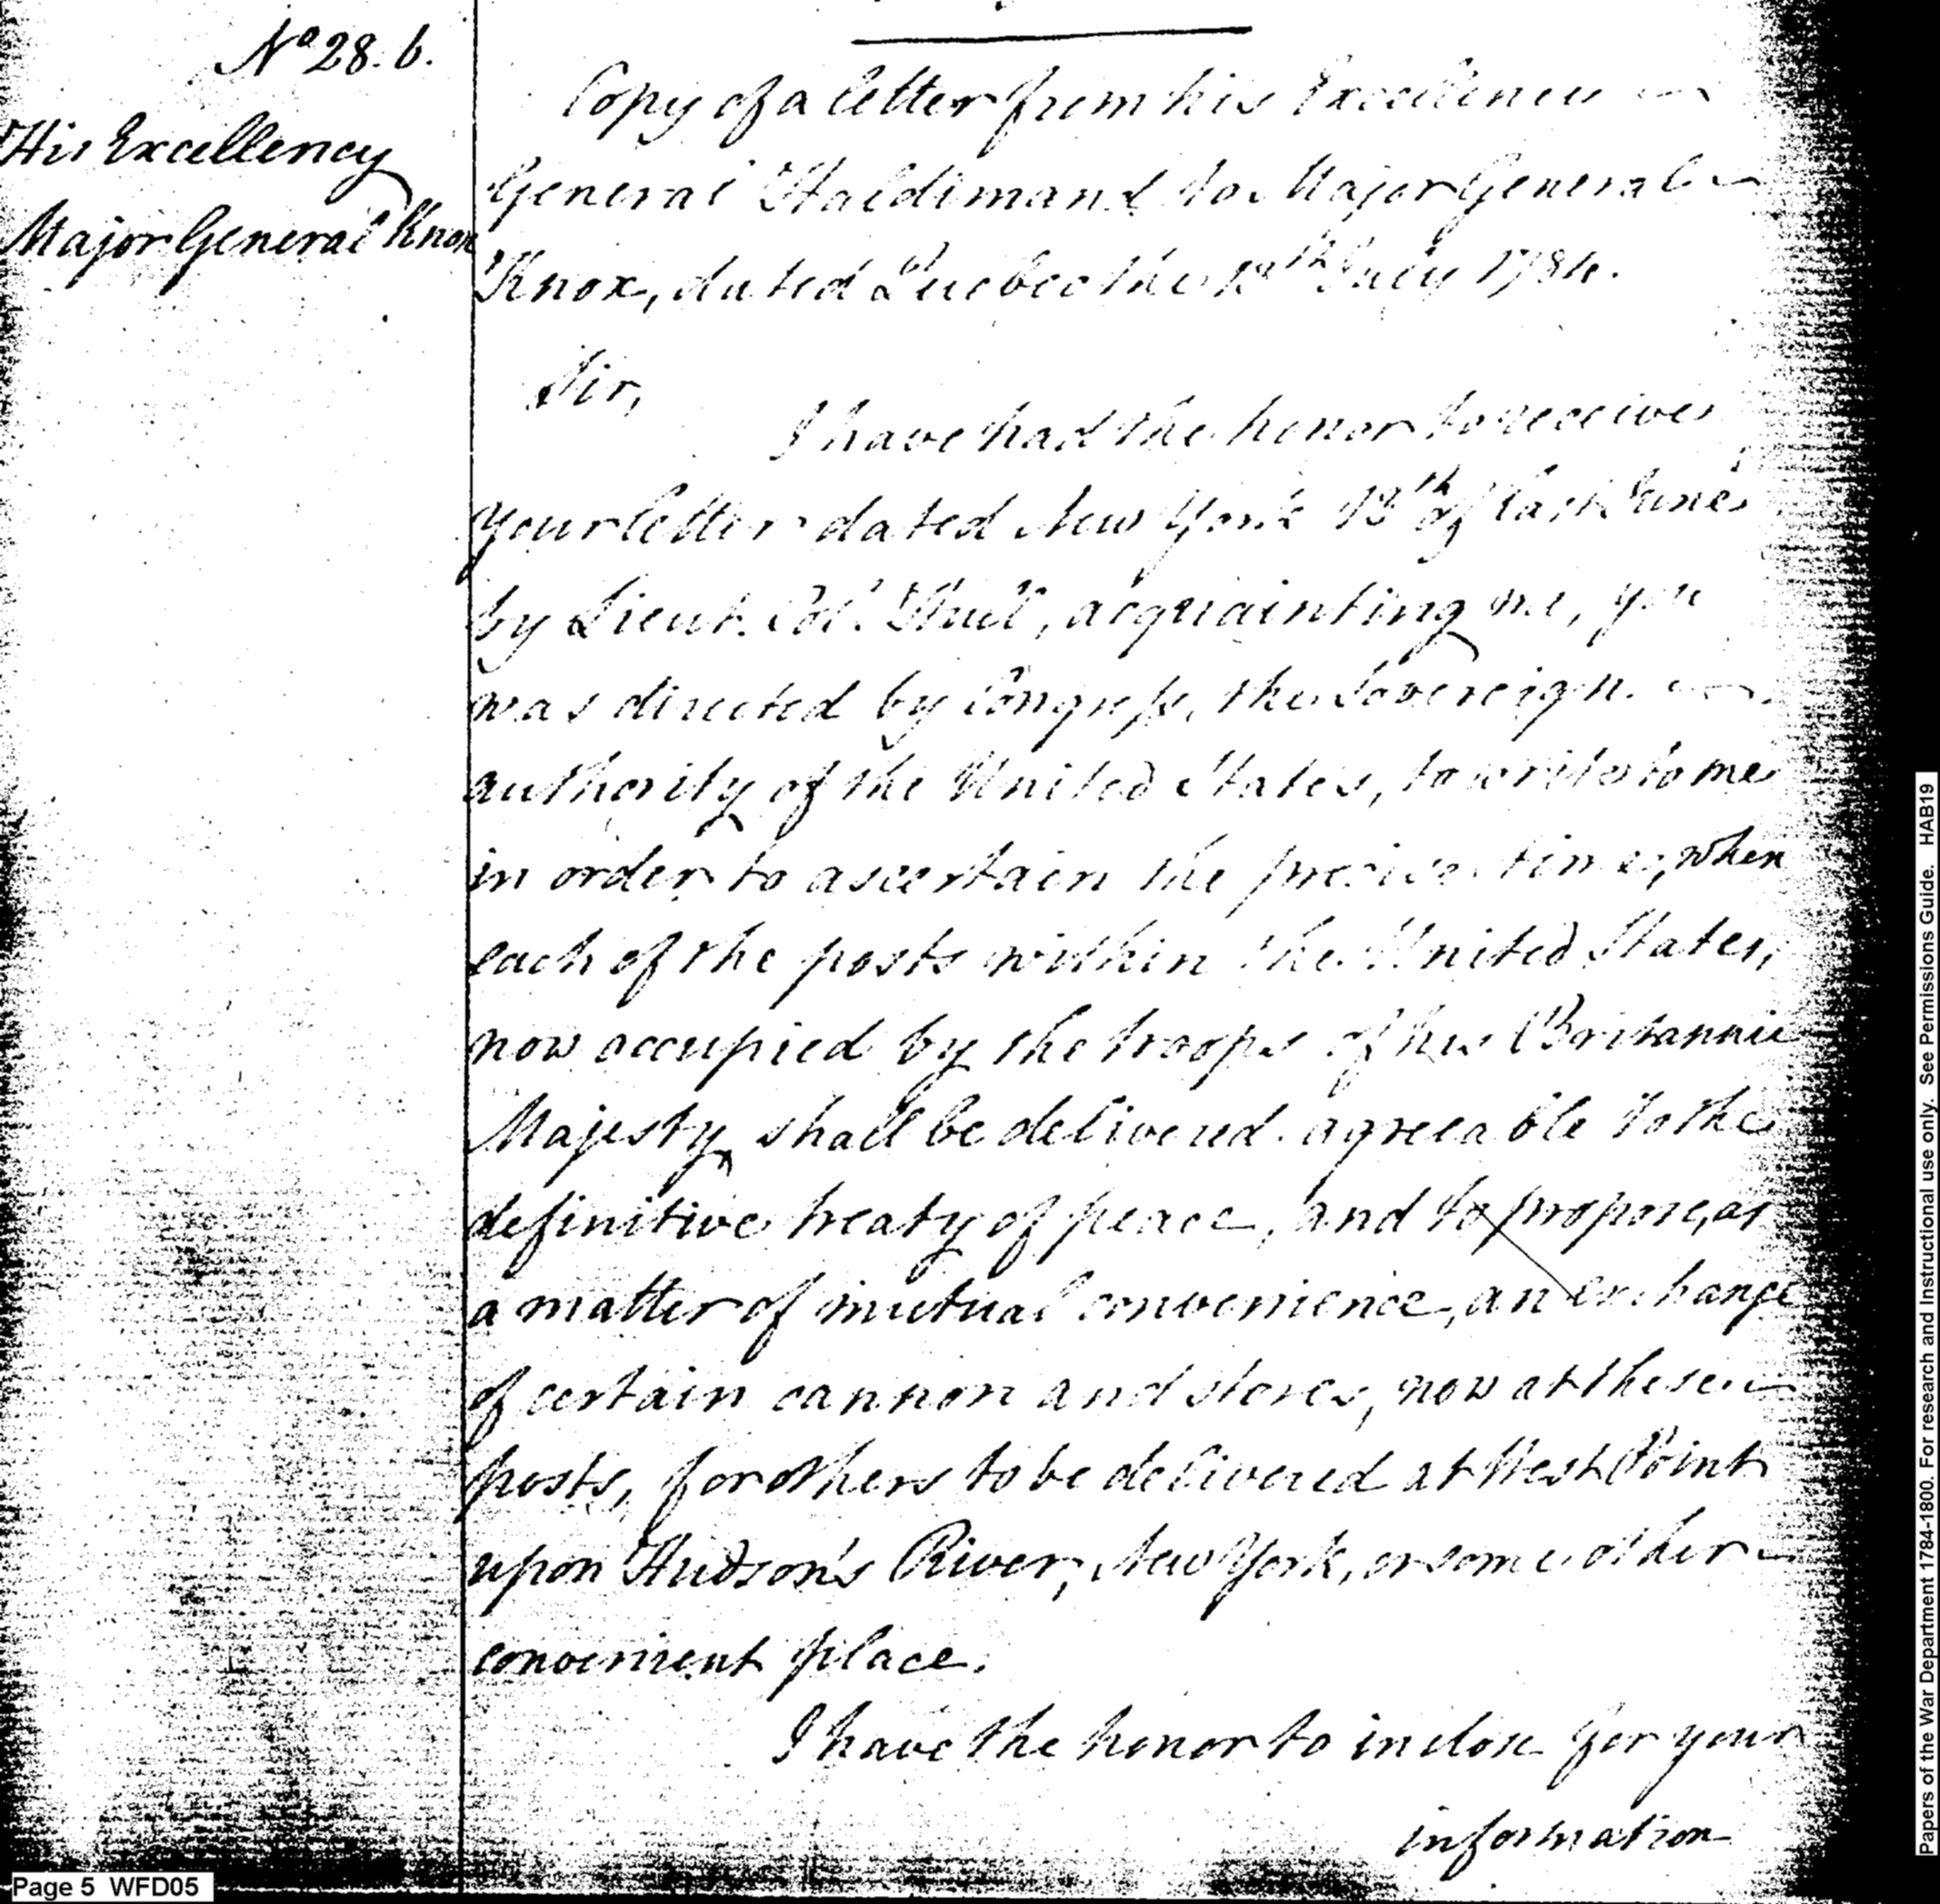 No 28. b.
His Excellency
Major General Knox
Copy of a letter from his Excellency
General Haldimand to Major General
Knox, dated Quebec the 12th July 1784.
Sir,
I have had the honor to receive
your letter dated New York 13th of last June
by Lieut. Col. Hull, acquainting me, you
was directed by Congress, the Sovereign
authority of the United States, to write to me
in order to ascertain the precise time, when
each of the posts within the United States,
now occupied by the troops of his Britannic
Majesty shall be delivered agreeable to the
definitive treaty of peace, and to propose, as
a matter of mutual convenience, an exchange
of certain cannon and stores, now at these
posts, for others to be delivered at West Point
upon Hudson's River, New York, or some other
convenient place.
I have the honor to inclose for your
information
Page 5 WFD05
Papers of the War Department 1784-1800. For research and Instructional use only. See Permissions Guide. HAB19